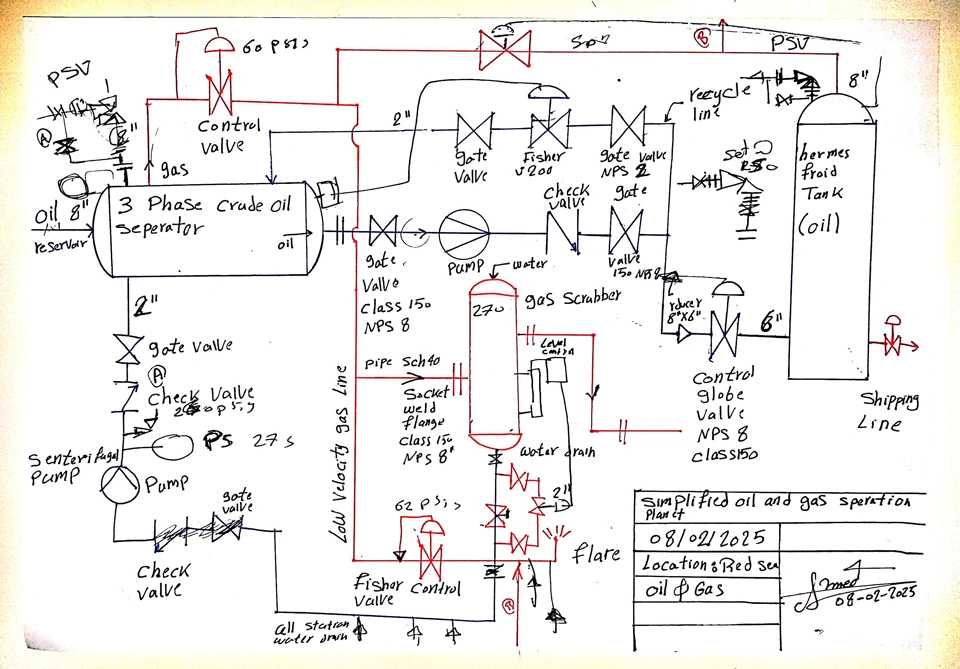 60 psi
Spy
B
PSV
PSV
8"
A
8"
control
valve
gas
2"
recycle
line
gate
valve
Fisher
J200
gate valve
NPS 2
Set
hermes
froid
Tank
(oil)
oil 8"
reservoir
3 Phase crude oil
seperator
oil
check
valve
gate
valve
150 NPS 8
pump
gate
valve
class 150
NPS 8
water
gas scrubber
270
reducer
8"x6"
6"
2"
gate valve
A
check valve
psi
PS 275
senterifugal
pump
Pump
gate
valve
check
valve
Low velocity gas line
pipe sch40
socket
weld
flange
class 150
NPS 8"
Level
control
control
globe
valve
NPS 8
class150
shipping
Line
water drain
2"
62 psi
flare
fisher control
valve
B
cell station
water drain
simplified oil and gas speration
planct
08/02/2025
Location: Red sea
oil & Gas
Ahmed
08-02-2025